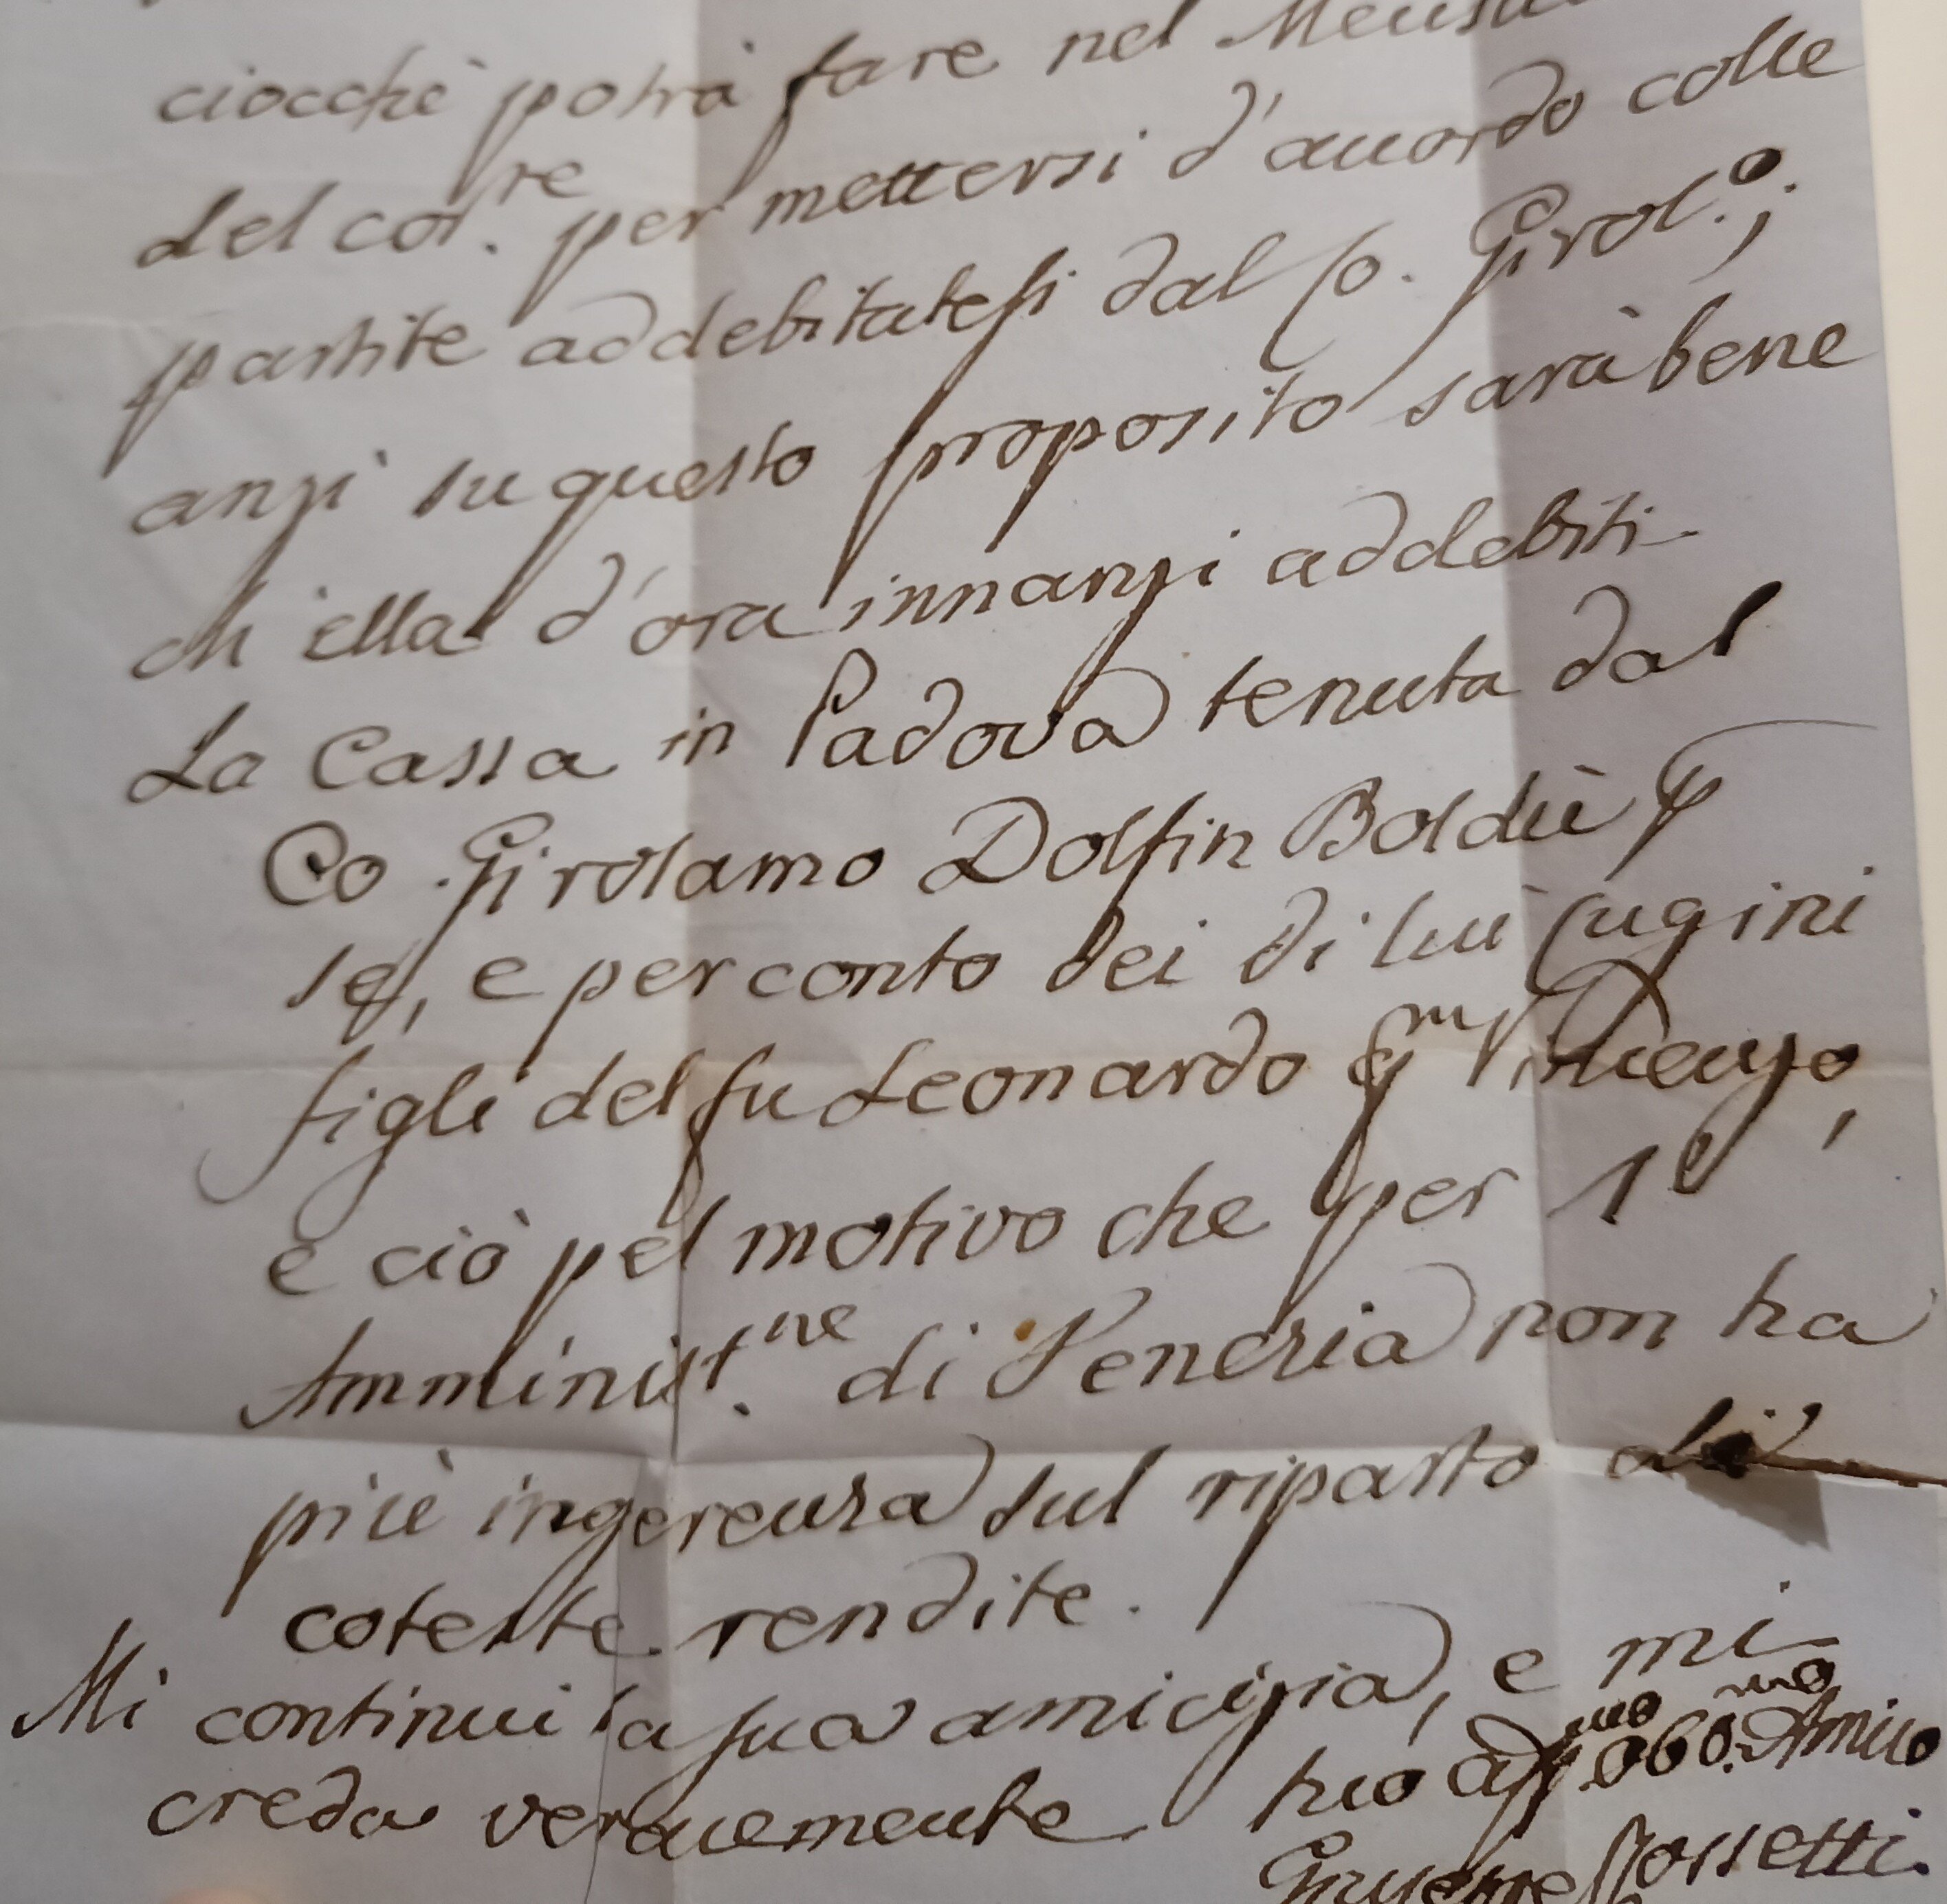 ciocchè potrà fare nel
del cor.re per mettersi d'accordo colle
partite addebitatesi dal Co. Girol.o;
anzi su questo proposito sarà bene
ch'ella d'ora innanzi addebiti
La Cassa in Padova tenuta dal
Co. Girolamo Dolfin Boldù p
se, e per conto dei di lui Cugini
figli del fu Leonardo qm Vincenzo,
e ciò pel motivo che per
Amminist.ne di Venezia non ha
più ingerenza sul riparto di
coteste rendite.
Mi continui la sua amicizia, e mi
creda veracemente suo aff.mo obb.mo Amico
Giuseppe Rossetti.